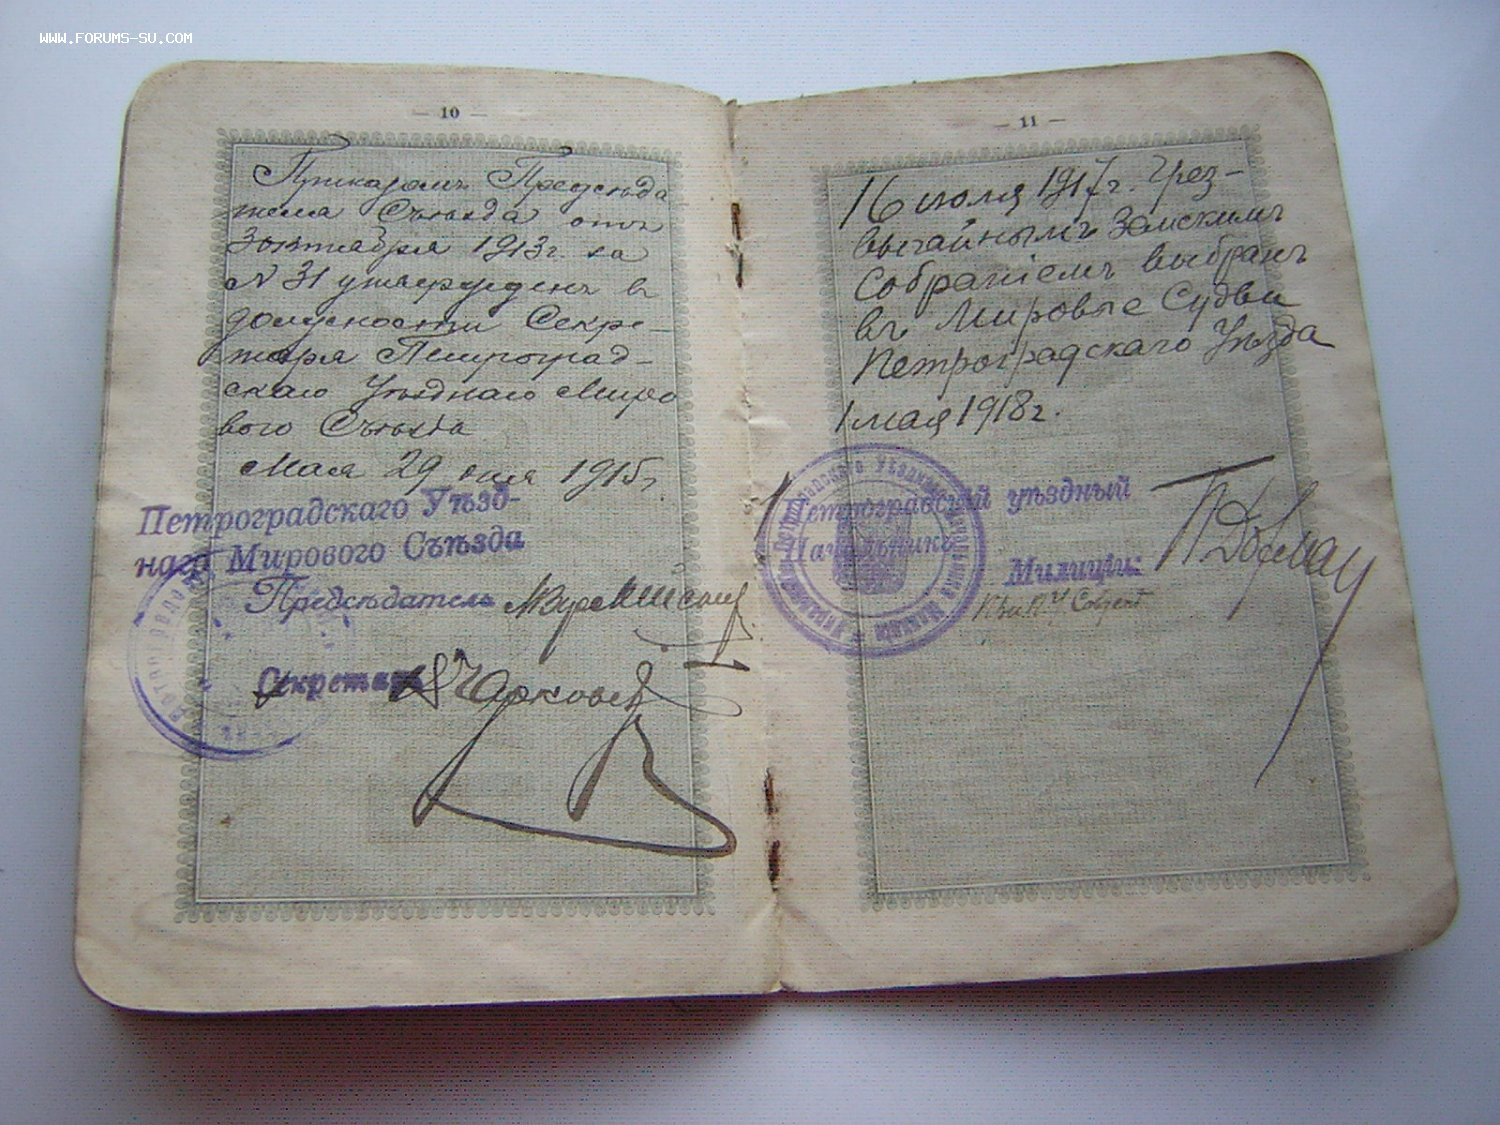 WWW.FORUMS-SU.COM
— 10 —
Приказомъ Председа
теля Съѣзда отъ
3 октября 1913 г. за
N 31 утвержденъ въ
должности Секре-
таря Петроград-
скаго Уѣзднаго Миро
вого Съѣзда
Мая 29 дня 1915 г.
Петроградскаго Уѣзд-
наго Мирового Съѣзда
Предсѣдатель
Секретарь
— 11 —
16 июля 1917 г. Чрез-
вычайнымъ Земскимъ
Собраніемъ выбранъ
въ Мировые Судьи
Петроградскаго Уѣзда
1 мая 1918 г.
Петроградскій уѣздный
Начальникъ
Милиціи: